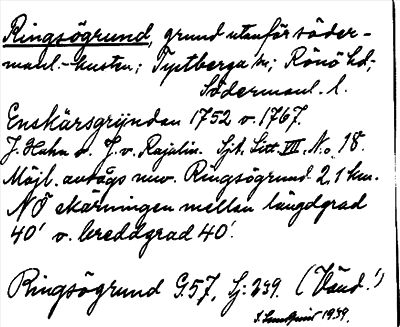 Ringsögrund, grund utanför söder-
manl.-kusten; Tystberga sn; Rönö hd;
Södermanl. l.
Enskärsgrynden 1752 v. 1767.
J. Hahn o. J. v. Rajalin. Sjk. Litt VIII. No 18.
Möjl. avsågs nuv. Ringsögrund 2,1 km.
NÖ skärningen mellan längdgrad
40' v. breddgrad 40'.
Ringsögrund G.57, Sj: 239. (Vänd!)
1939.